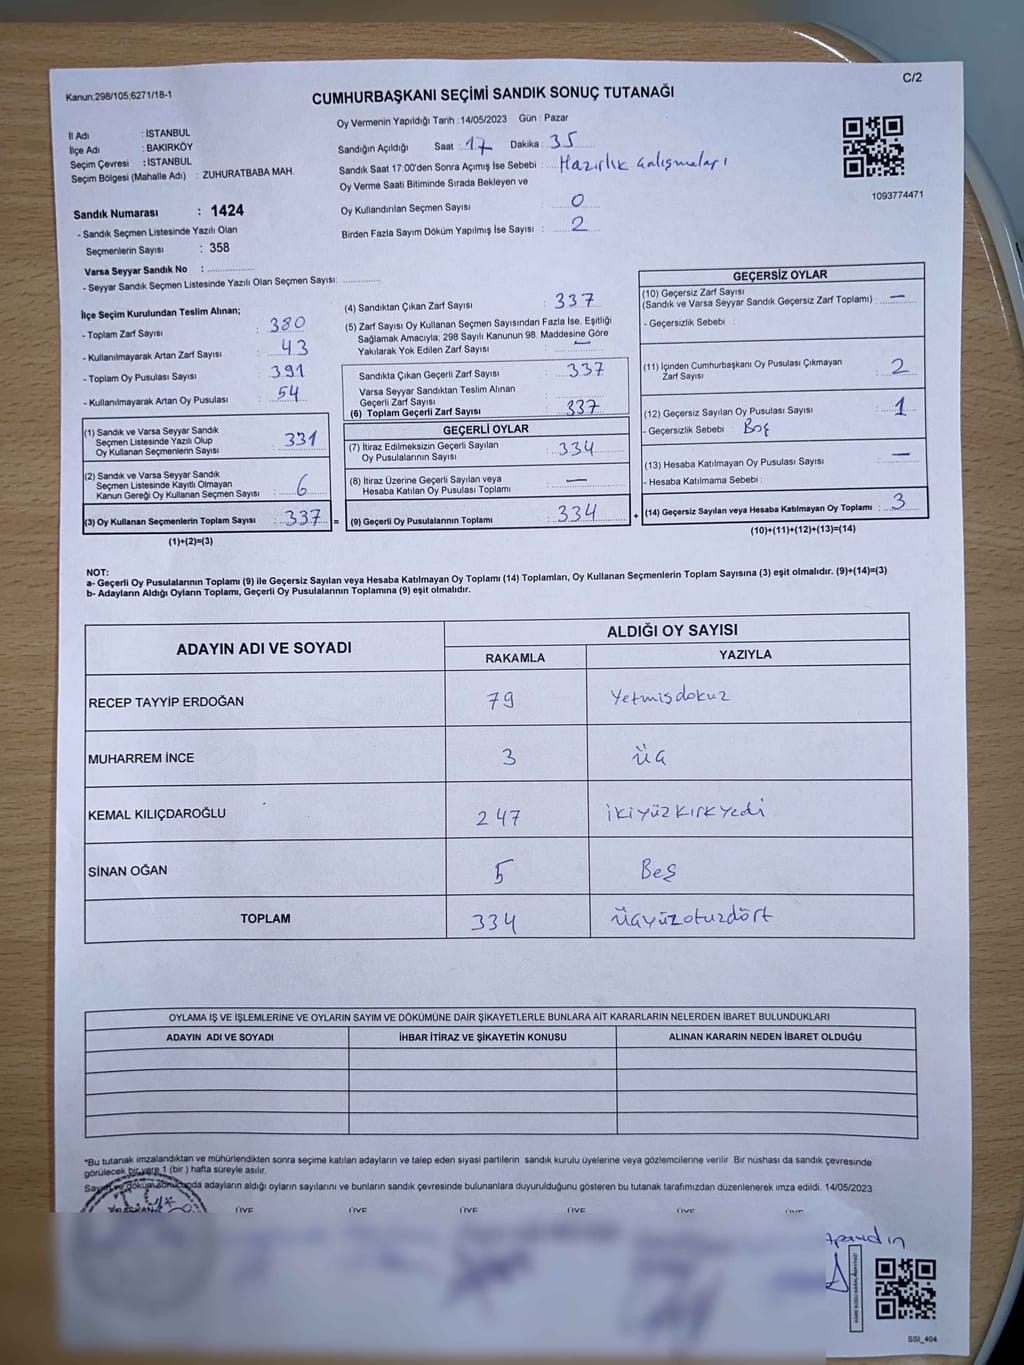 C/2
Kanun;298/105,6271/18-1
CUMHURBAŞKANI SEÇİMİ SANDIK SONUÇ TUTANAĞI
Oy Vermenin Yapıldığı Tarih : 14/05/2023 Gün : Pazar
İl Adı : İSTANBUL
İlçe Adı : BAKIRKÖY
Seçim Çevresi : İSTANBUL
Seçim Bölgesi (Mahalle Adı) : ZUHURATBABA MAH.
Sandığın Açıldığı Saat : 17 Dakika : 35
Sandık Saat 17:00'den Sonra Açımış İse Sebebi : Hazırlık Çalışmaları
Oy Verme Saati Bitiminde Sırada Bekleyen ve
Oy Kullandırılan Seçmen Sayısı 0
Birden Fazla Sayım Döküm Yapılmış İse Sayısı : 2
1093774471
Sandık Numarası : 1424
- Sandık Seçmen Listesinde Yazılı Olan
Seçmenlerin Sayısı : 358
Varsa Seyyar Sandık No :
- Seyyar Sandık Seçmen Listesinde Yazılı Olan Seçmen Sayısı:
İlçe Seçim Kurulundan Teslim Alınan;
- Toplam Zarf Sayısı : 380
- Kullanılmayarak Artan Zarf Sayısı : 43
- Toplam Oy Pusulası Sayısı : 391
- Kullanılmayarak Artan Oy Pusulası : 54
(1) Sandık ve Varsa Seyyar Sandık
Seçmen Listesinde Yazılı Olup
Oy Kullanan Seçmenlerin Sayısı : 331
(2) Sandık ve Varsa Seyyar Sandık
Seçmen Listesinde Kayıtlı Olmayan
Kanun Gereği Oy Kullanan Seçmen Sayısı : 6
(3) Oy Kullanan Seçmenlerin Toplam Sayısı : 337 =
(1)+(2)=(3)
(4) Sandıktan Çıkan Zarf Sayısı : 337
(5) Zarf Sayısı Oy Kullanan Seçmen Sayısından Fazla İse, Eşitliği
Sağlamak Amacıyla; 298 Sayılı Kanunun 98. Maddesine Göre
Yakılarak Yok Edilen Zarf Sayısı : —
Sandıkta Çıkan Geçerli Zarf Sayısı : 337
Varsa Seyyar Sandıktan Teslim Alınan
Geçerli Zarf Sayısı
(6) Toplam Geçerli Zarf Sayısı : 337
GEÇERLİ OYLAR
(7) İtiraz Edilmeksizin Geçerli Sayılan
Oy Pusulalarının Sayısı : 334
(8) İtiraz Üzerine Geçerli Sayılan veya
Hesaba Katılan Oy Pusulası Toplamı : —
(9) Geçerli Oy Pusulalarının Toplamı : 334 +
GEÇERSİZ OYLAR
(10) Geçersiz Zarf Sayısı
(Sandık ve Varsa Seyyar Sandık Geçersiz Zarf Toplamı) : —
- Geçersizlik Sebebi :
(11) İçinden Cumhurbaşkanı Oy Pusulası Çıkmayan
Zarf Sayısı : 2
(12) Geçersiz Sayılan Oy Pusulası Sayısı : 1
- Geçersizlik Sebebi : Boş
(13) Hesaba Katılmayan Oy Pusulası Sayısı : —
- Hesaba Katılmama Sebebi :
(14) Geçersiz Sayılan veya Hesaba Katılmayan Oy Toplamı : 3
(10)+(11)+(12)+(13)=(14)
NOT:
a- Geçerli Oy Pusulalarının Toplamı (9) ile Geçersiz Sayılan veya Hesaba Katılmayan Oy Toplamı (14) Toplamları, Oy Kullanan Seçmenlerin Toplam Sayısına (3) eşit olmalıdır. (9)+(14)=(3)
b- Adayların Aldığı Oyların Toplamı, Geçerli Oy Pusulalarının Toplamına (9) eşit olmalıdır.
ADAYIN ADI VE SOYADI ALDIĞI OY SAYISI
RAKAMLA YAZIYLA
RECEP TAYYİP ERDOĞAN 79 Yetmişdokuz
MUHARREM İNCE 3 üç
KEMAL KILIÇDAROĞLU 247 ikiyüzkırkyedi
SİNAN OĞAN 5 Beş
TOPLAM 334 üçyüzotuzdört
OYLAMA İŞ VE İŞLEMLERİNE VE OYLARIN SAYIM VE DÖKÜMÜNE DAİR ŞİKAYETLERLE BUNLARA AİT KARARLARIN NELERDEN İBARET BULUNDUKLARI
ADAYIN ADI VE SOYADI İHBAR İTİRAZ VE ŞİKAYETİN KONUSU ALINAN KARARIN NEDEN İBARET OLDUĞU
*Bu tutanak imzalandıktan ve mühürlendikten sonra seçime katılan adayların ve talep eden siyasi partilerin sandık kurulu üyelerine veya gözlemcilerine verilir. Bir nüshası da sandık çevresinde
görülecek bir yere 1 (bir ) hafta süreyle asılır.
Sayım ve döküm sonucunda adayların aldığı oyların sayılarını ve bunların sandık çevresinde bulunanlara duyurulduğunu gösteren bu tutanak tarafımızdan düzenlenerek imza edildi. 14/05/2023
BAŞKAN ÜYE ÜYE ÜYE ÜYE ÜYE
SSI_404